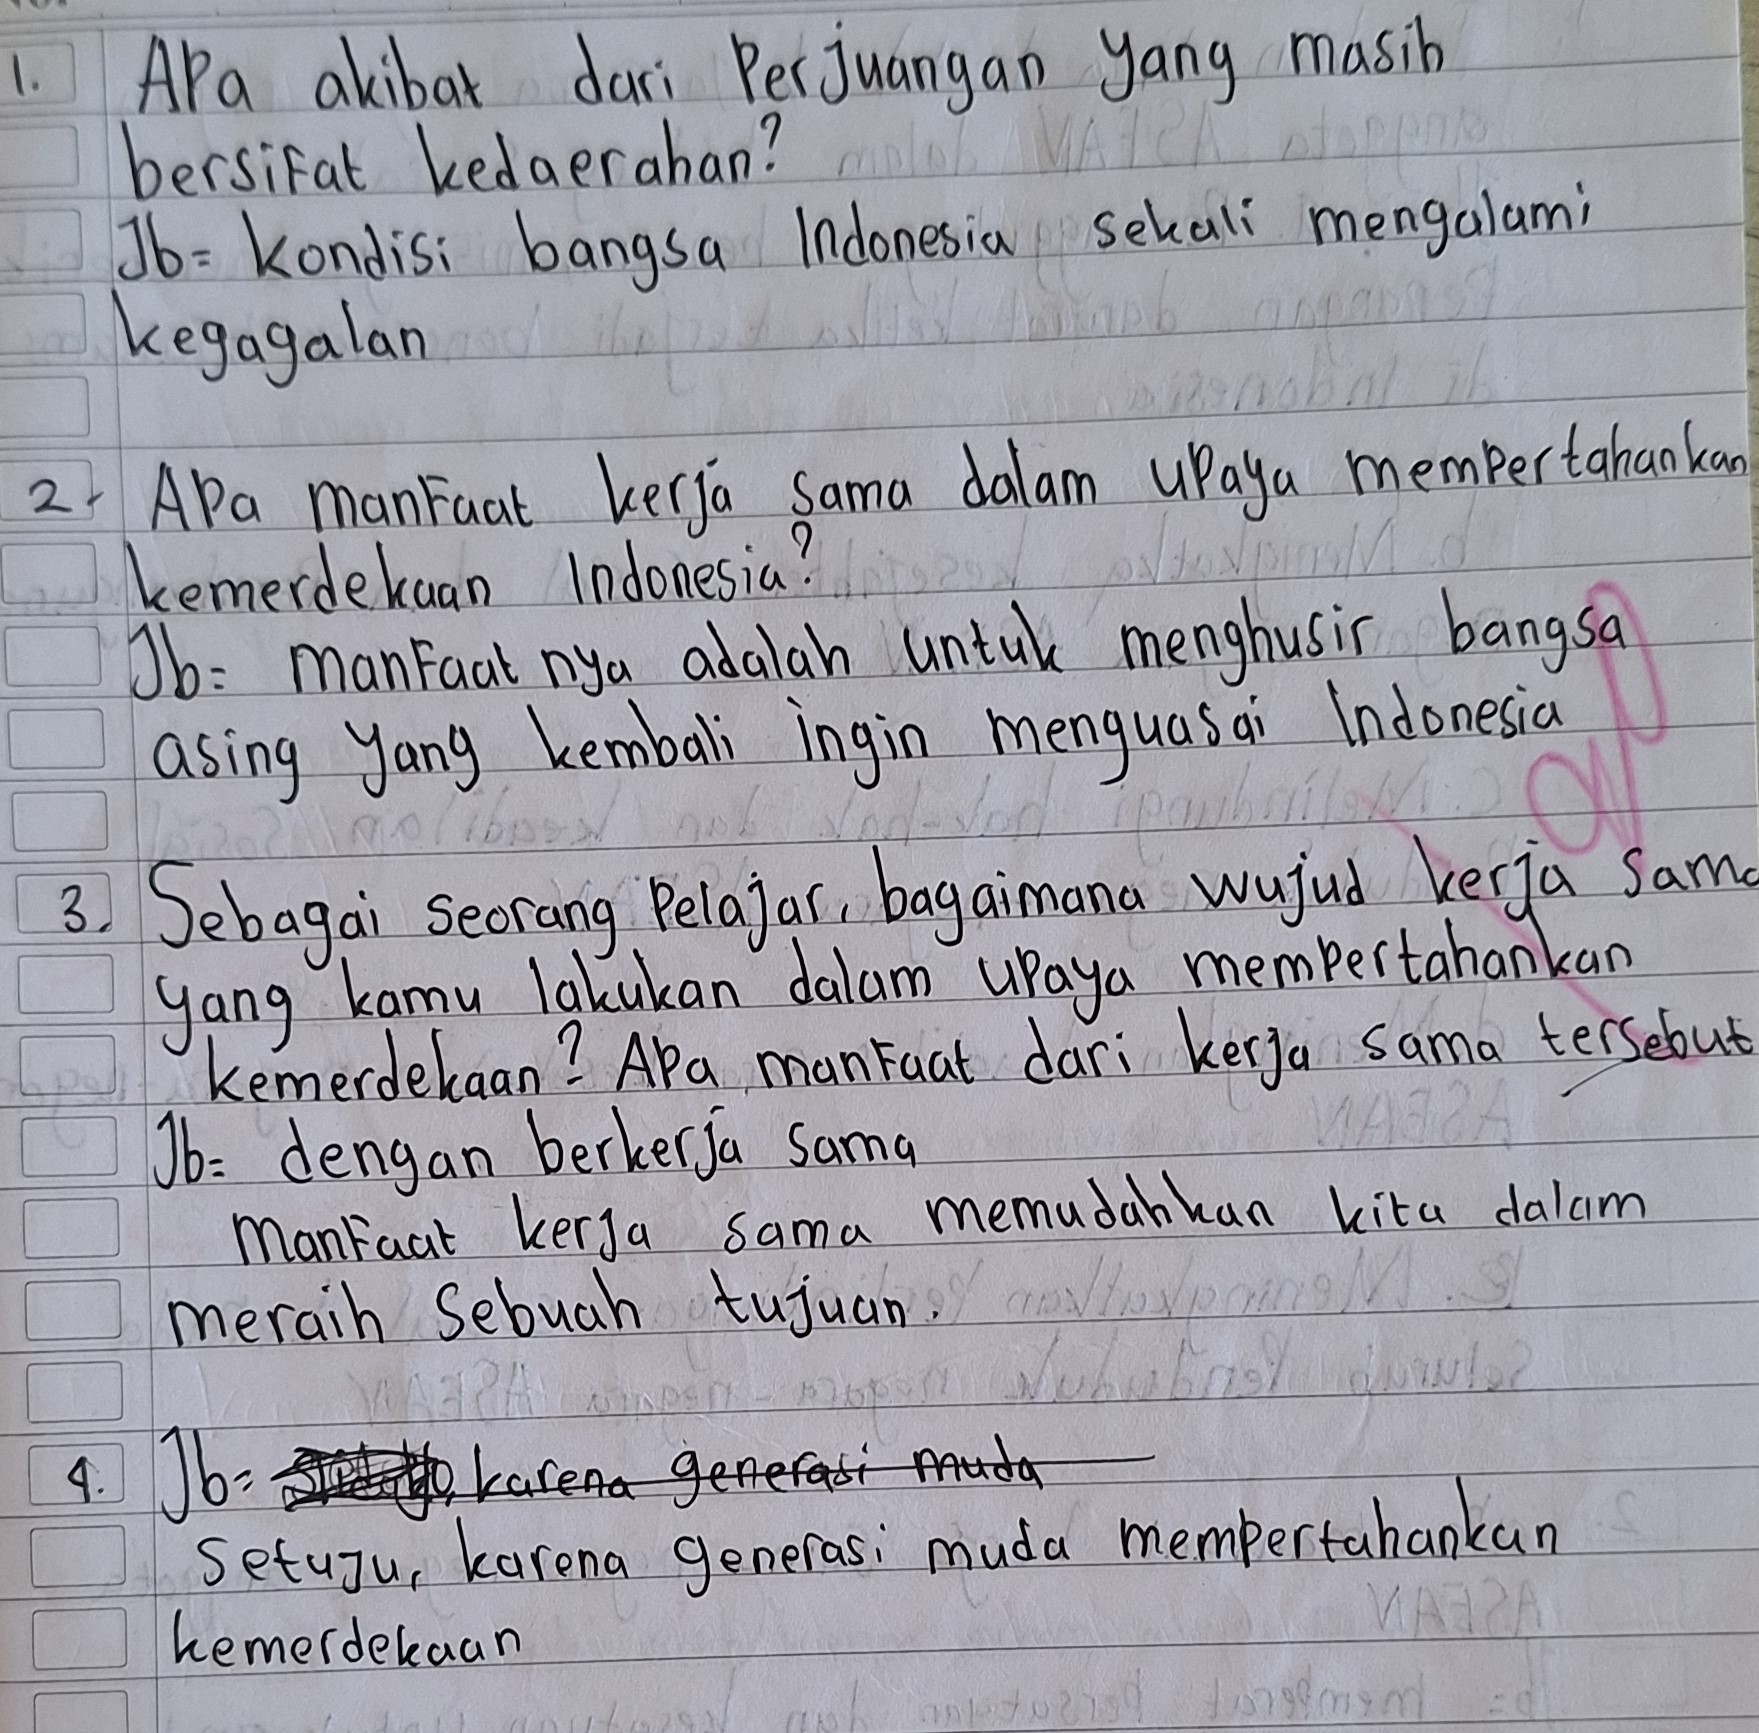 1. Apa akibat dari Perjuangan yang masih
bersifat kedaerahan?
Jb= kondisi bangsa Indonesia sekali mengalami
kegagalan
2. Apa manfaat kerja sama dalam upaya mempertahankan
kemerdekaan Indonesia?
Jb= manfaat nya adalah untuk menghusir bangsa
asing yang kembali ingin menguasai Indonesia
3. Sebagai seorang Pelajar, bagaimana wujud kerja sama
yang kamu lakukan dalam upaya mempertahankan
kemerdekaan? Apa manfaat dari kerja sama tersebut
Jb= dengan berkerja sama
manfaat kerja sama memudahkan kita dalam
meraih Sebuah tujuan.
4. Jb= karena generasi muda
Setuju, karena generasi muda mempertahankan
kemerdekaan